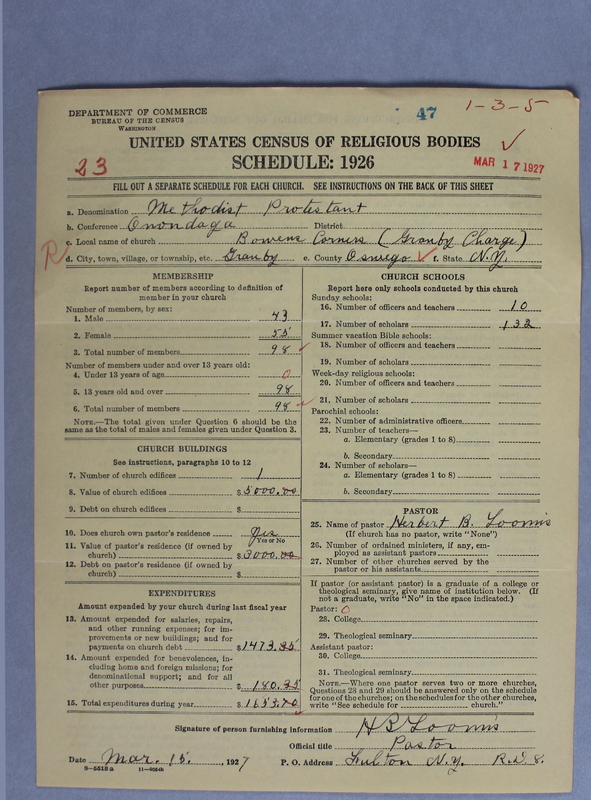 DEPARTMENT OF COMMERCE
BUREAU OF THE CENSUS
WASHINGTON
47
1-3-5
UNITED STATES CENSUS OF RELIGIOUS BODIES
SCHEDULE: 1926
23
MAR 17 1927
FILL OUT A SEPARATE SCHEDULE FOR EACH CHURCH. SEE INSTRUCTIONS ON THE BACK OF THIS SHEET
a. Denomination Methodist Protestant
b. Conference Onondaga District
c. Local name of church Bowens Corners (Granby Charge)
R d. City, town, village, or township, etc. Granby e. County Oswego f. State N.Y.
MEMBERSHIP
Report number of members according to definition of
member in your church
Number of members, by sex:
1. Male 43
2. Female 55
3. Total number of members 98
Number of members under and over 13 years old:
4. Under 13 years of age 0
5. 13 years old and over 98
6. Total number of members 98
NOTE.—The total given under Question 6 should be
same as the total of males and females given under Question 3.
CHURCH BUILDINGS
See instructions, paragraphs 10 to 12
7. Number of church edifices 1
8. Value of church edifices $5000.00
9. Debt on church edifices $
10. Does church own pastor's residence? Yes
Yes or No
11. Value of pastor's residence (if owned by
church) $3000.00
12. Debt on pastor's residence (if owned by
church) $
EXPENDITURES
Amount expended by your church during last fiscal year
13. Amount expended for salaries, repairs,
and other running expenses; for im-
provements or new buildings; and for
payments on church debt $1473.35
14. Amount expended for benevolences, in-
cluding home and foreign missions; for
denominational support; and for all
other purposes $180.35
15. Total expenditures during year $1653.70
CHURCH SCHOOLS
Report here only schools conducted by this church
Sunday schools:
16. Number of officers and teachers 10
17. Number of scholars 132
Summer vacation Bible schools:
18. Number of officers and teachers
19. Number of scholars
Week-day religious schools:
20. Number of officers and teachers
21. Number of scholars
Parochial schools:
22. Number of administrative officers
23. Number of teachers—
a. Elementary (grades 1 to 8)
b. Secondary
24. Number of scholars—
a. Elementary (grades 1 to 8)
b. Secondary
PASTOR
25. Name of pastor Herbert B. Loomis
(If church has no pastor, write "None")
26. Number of ordained ministers, if any, em-
ployed as assistant pastors
27. Number of other churches served by the
pastor or his assistants
If pastor (or assistant pastor) is a graduate of a college or
theological seminary, give name of institution below. (If
not a graduate, write "No" in the space indicated.)
Pastor: 0
28. College
29. Theological seminary
Assistant pastor:
30. College
31. Theological seminary
NOTE.—Where one pastor serves two or more churches,
Questions 28 and 29 should be answered only on the schedule
for one of the churches; on the schedules for the other churches,
write "See schedule for church."
Signature of person furnishing information H B Loomis
Official title Pastor
Date Mar. 15, 1927 P. O. Address Fulton N.Y. R.D. 8.